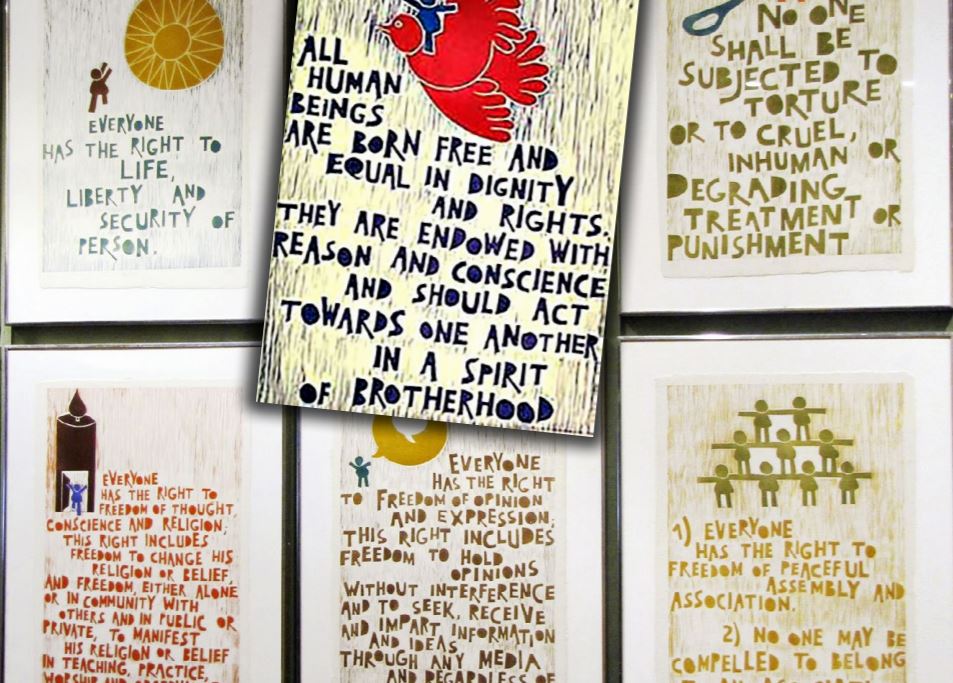 EVERYONE
HAS THE RIGHT TO
LIFE,
LIBERTY AND
SECURITY OF
PERSON.
ALL
HUMAN
BEINGS
ARE BORN FREE AND
EQUAL IN DIGNITY
AND RIGHTS.
THEY ARE ENDOWED WITH
REASON AND CONSCIENCE
AND SHOULD ACT
TOWARDS ONE ANOTHER
IN A SPIRIT
OF BROTHERHOOD
NO ONE
SHALL BE
SUBJECTED TO
TORTURE
OR TO CRUEL,
INHUMAN OR
DEGRADING
TREATMENT OR
PUNISHMENT
EVERYONE
HAS THE RIGHT TO
FREEDOM OF THOUGHT,
CONSCIENCE AND RELIGION;
THIS RIGHT INCLUDES
FREEDOM TO CHANGE HIS
RELIGION OR BELIEF,
AND FREEDOM, EITHER ALONE
OR IN COMMUNITY WITH
OTHERS AND IN PUBLIC OR
PRIVATE, TO MANIFEST
HIS RELIGION OR BELIEF
IN TEACHING, PRACTICE,
WORSHIP AND
EVERYONE
HAS THE RIGHT
TO FREEDOM OF OPINION
AND EXPRESSION;
THIS RIGHT INCLUDES
FREEDOM TO HOLD
OPINIONS
WITHOUT INTERFERENCE
AND TO SEEK, RECEIVE
AND IMPART INFORMATION
AND IDEAS
THROUGH ANY MEDIA
AND REGARDLESS OF
1) EVERYONE
HAS THE RIGHT TO
FREEDOM OF PEACEFUL
ASSEMBLY AND
ASSOCIATION.
2) NO ONE MAY BE
COMPELLED TO BELONG